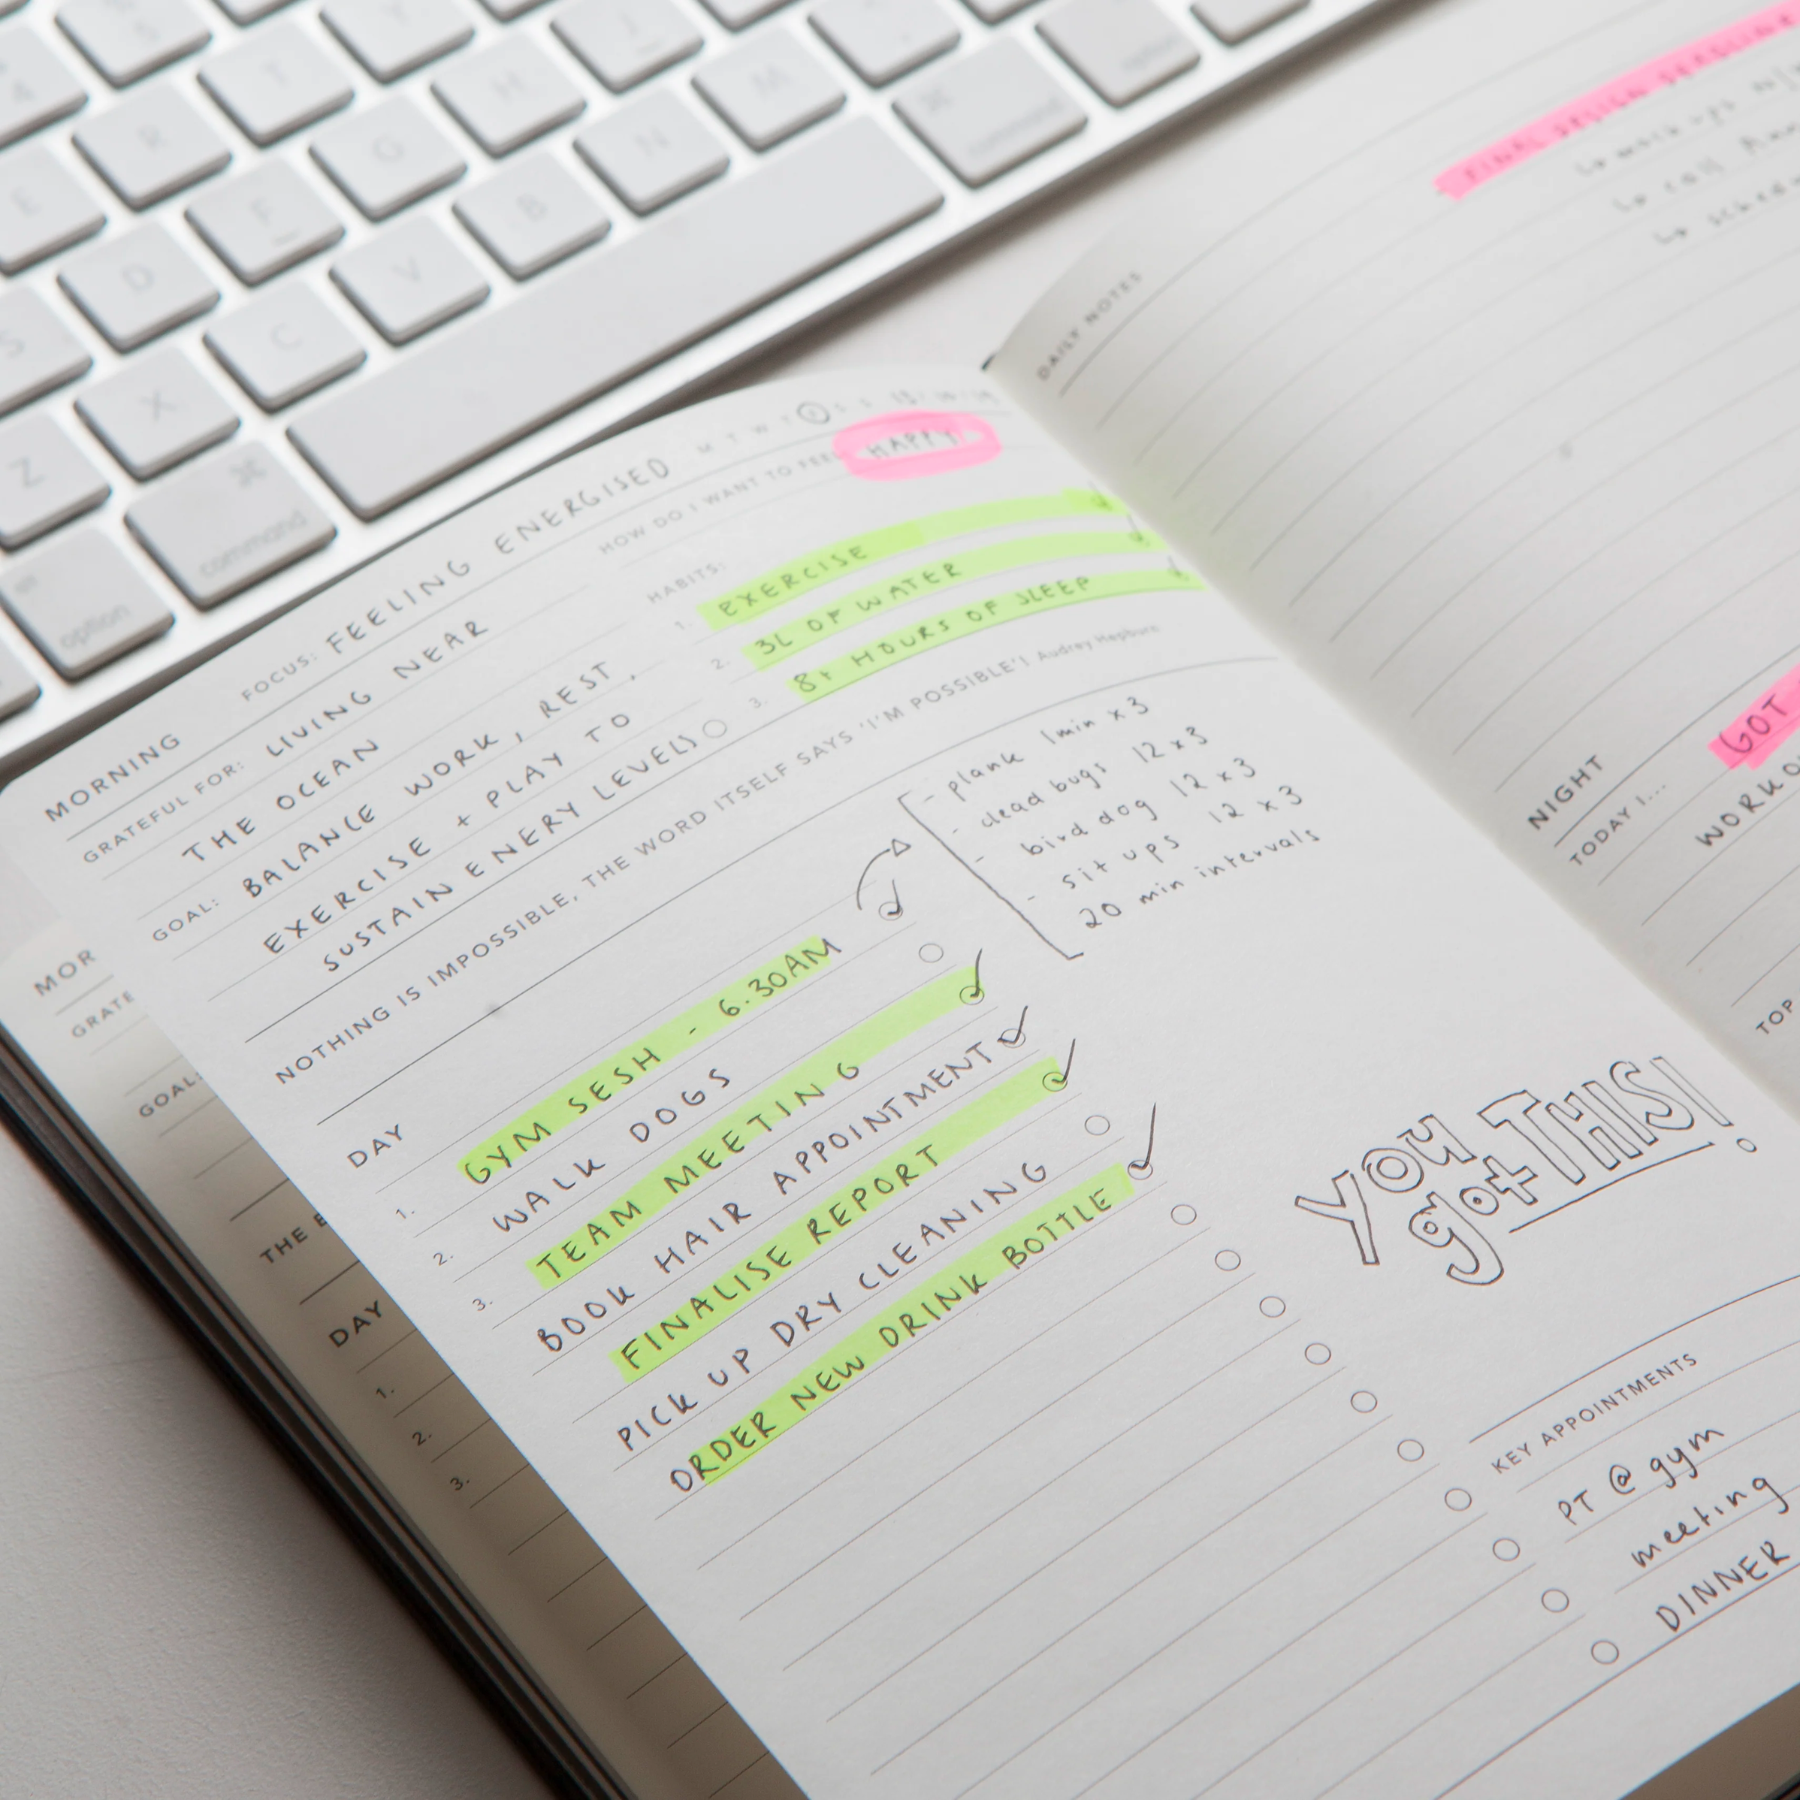 R
T
Y
E
F
G
H
J
S
D
C
V
B
N
M
Z
X
command
option
command
option
MORNING
FOCUS: FEELING ENERGISED
M T W T F S S
GRATEFUL FOR: LIVING NEAR
THE OCEAN
GOAL: BALANCE WORK, REST,
EXERCISE + PLAY TO
SUSTAIN ENERY LEVELS
HOW DO I WANT TO FEEL
HAPPY
HABITS:
1. EXERCISE
2. 3L OF WATER
3. 8+ HOURS OF SLEEP
NOTHING IS IMPOSSIBLE, THE WORD ITSELF SAYS 'I'M POSSIBLE'! Audrey Hepburn
DAY
1. GYM SESH - 6.30AM
2. WALK DOGS
3. TEAM MEETING
BOOK HAIR APPOINTMENT
FINALISE REPORT
PICK UP DRY CLEANING
ORDER NEW DRINK BOTTLE
- plank 1min x 3
- dead bugs 12 x 3
- bird dog 12 x 3
- sit ups 12 x 3
20 min intervals
You
got THIS!
KEY APPOINTMENTS
PT @ gym
meeting
DINNER
DAILY NOTES
↳ mockups
↳ call
NIGHT
TODAY I...
GOT
WORK
TOP
MOR
GRATE
GOAL:
THE
DAY
1.
2.
3.